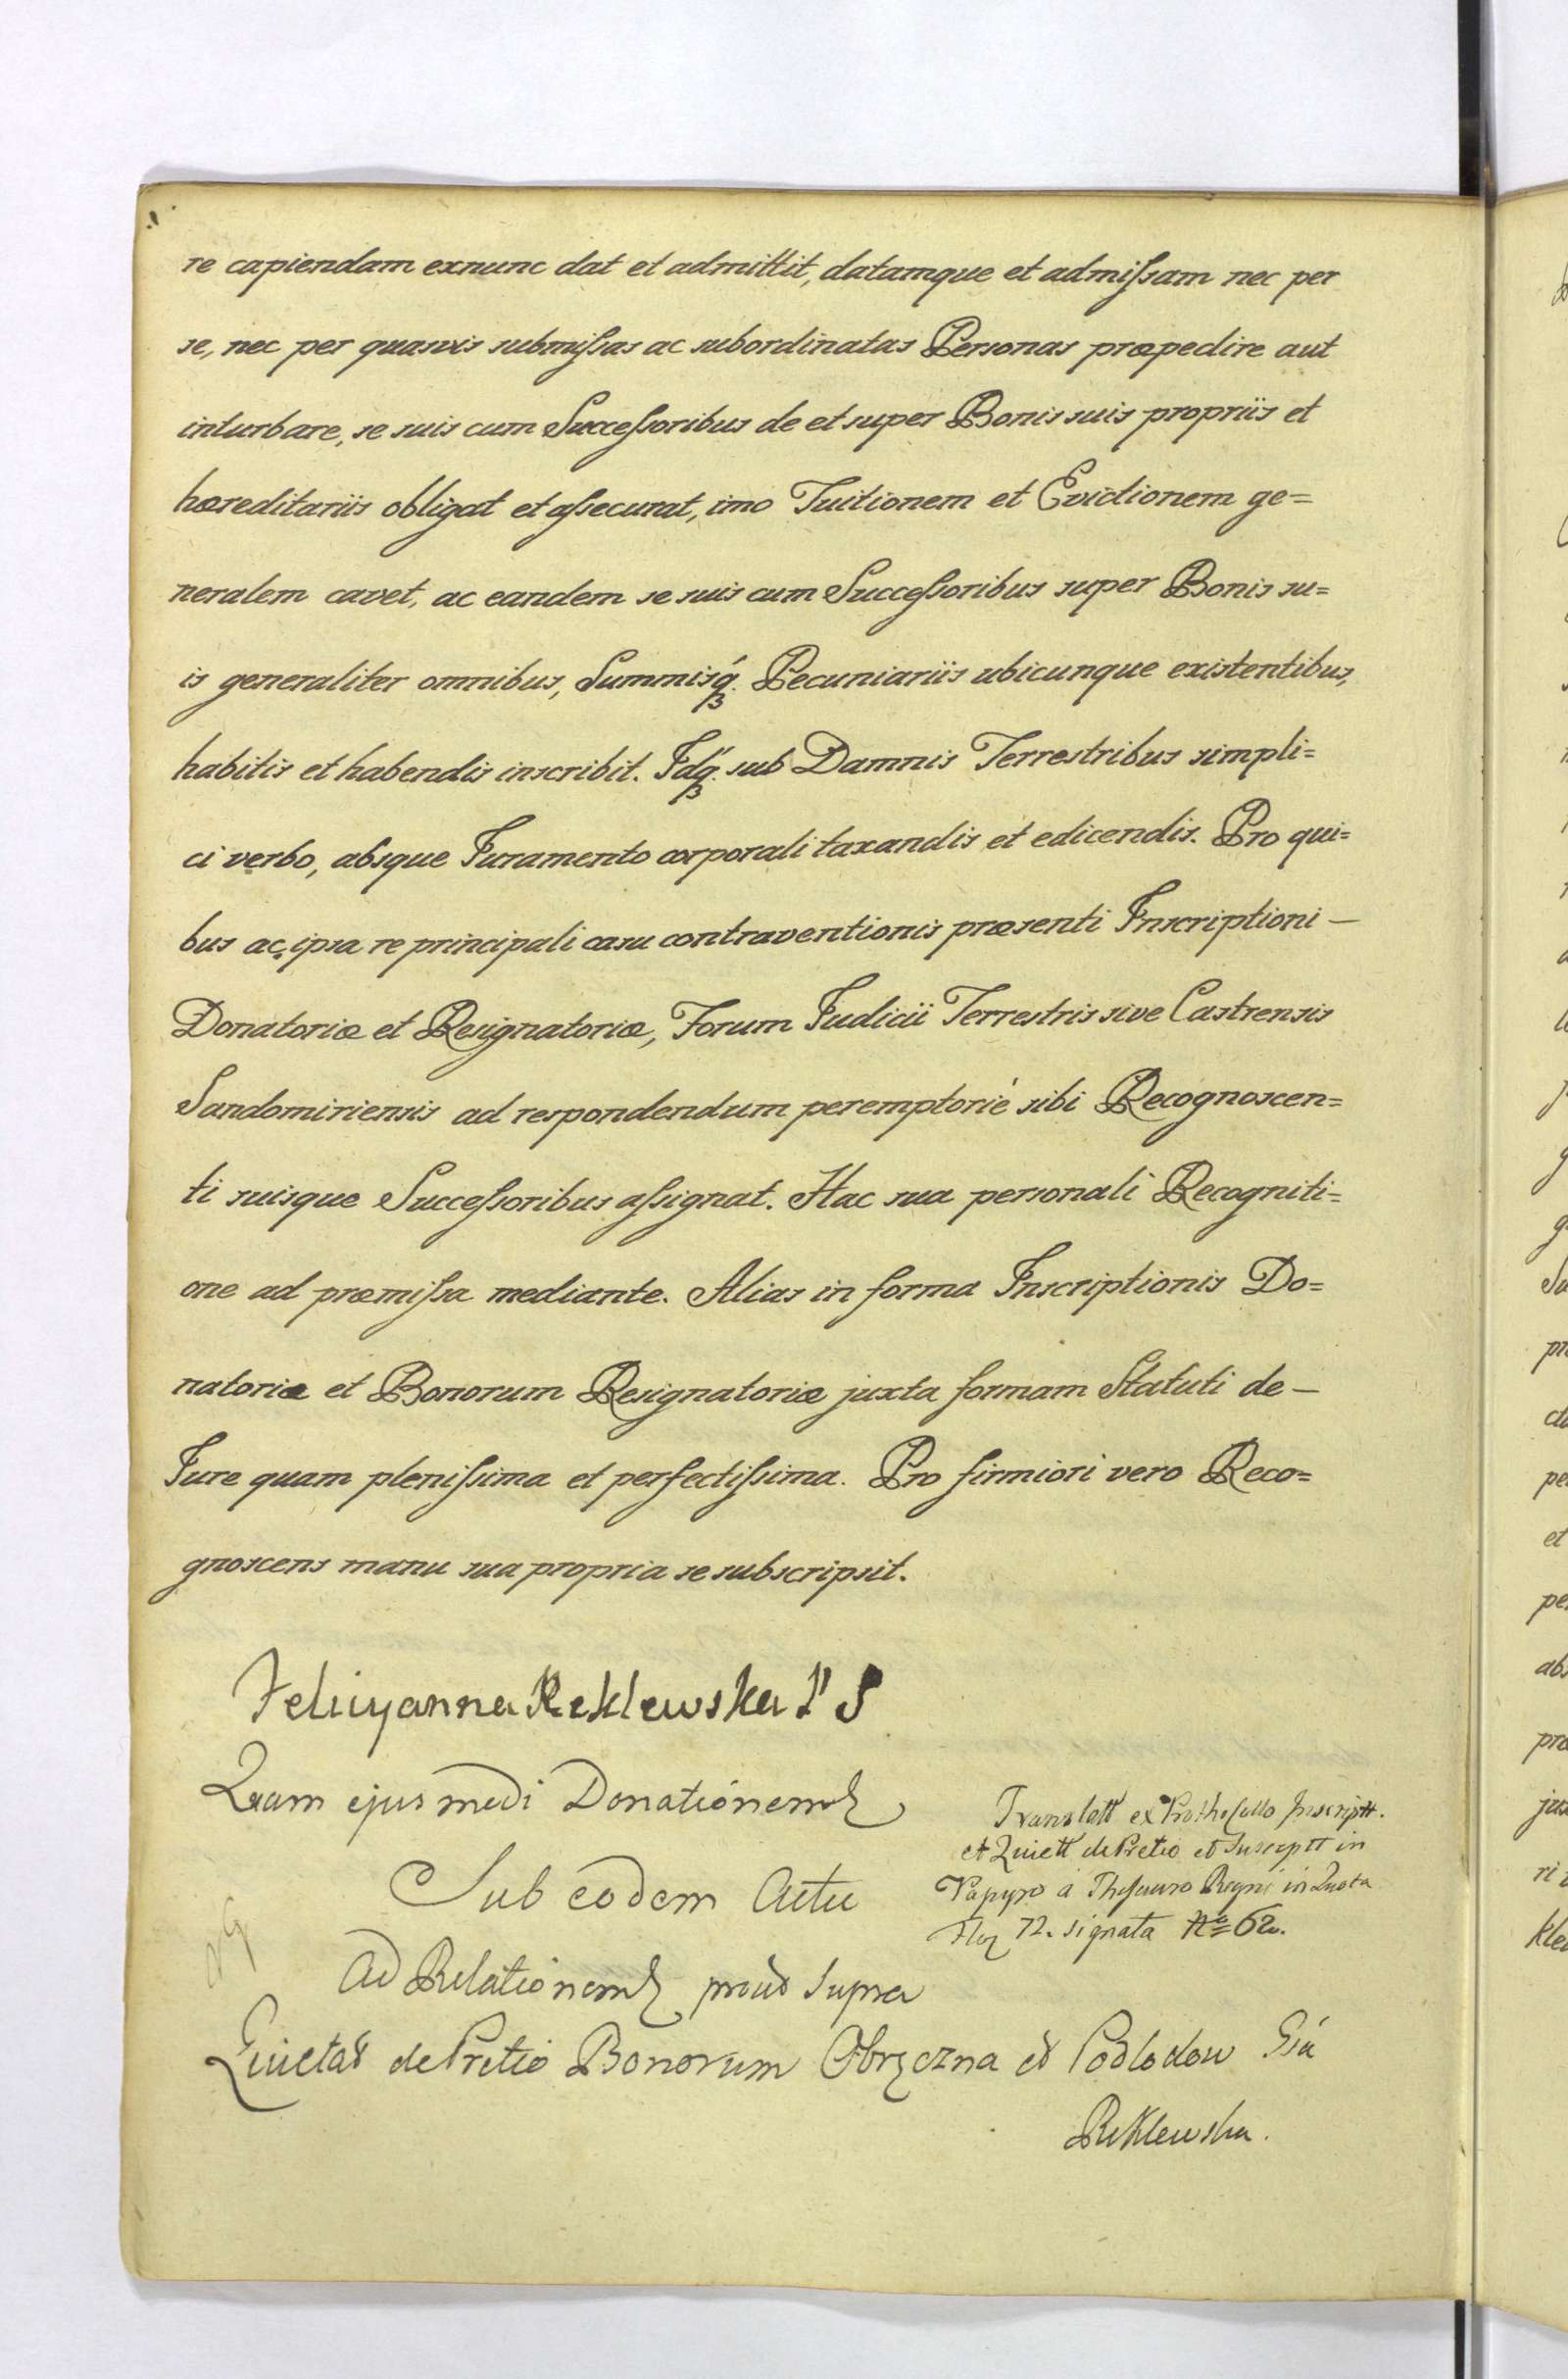 re capiendam exnunc dat et admittit, datamque et admiſsam nec per
se, nec per quasvis submiſsas ac subordinatas Personas præpedire aut
inturbare, se suis cum Succeſsoribus de et super Bonis suis propriis et
hæreditariis obligat et aſsecurat, imo Tuitionem et Evictionem ge=
neralem cavet, ac eandem se suis cum Succeſsoribus super Bonis su=
is generaliter omnibus, Summisq́ꝫ Pecuniariis ubicunque existentibus,
habitis et habendis inscribit. Idq́ꝫ sub Damnis Terrestribus simpli=
ci verbo, absque Juramento corporali taxandis et edicendis. Pro qui=
bus ac ipsa re principali casu contraventionis præsenti Inscriptioni —
Donatoriæ et Resignatoriæ, Forum Judicii Terrestris sive Castrensis
Sandomiriensis ad respondendum peremptorié sibi Recognoscen=
ti suisque Succeſsoribus aſsignat. Hac sua personali Recogniti=
one ad præmiſsa mediante. Alias in forma Inscriptionis Do=
natoriæ et Bonorum Resignatoriæ juxta formam Statuti de —
Jure quam pleniſsima et perfectiſsima. Pro firmiori vero Reco=
gnoscens manu sua propria se subscripsit.
Felicyanna Reklewska
Quam ejusmodi Donationem
Sub eodem Actu
Ad Relationem prout supra
Translatt ex Prothocollo Inscriptt.
et Quiett de Pretio et Susceptt in
Papyro á Thesauro Regni in Quota
Flor 72. signata No 62.
Quietat de Pretio Bonorum Obręczna et Podlodow Gſá
Reklewska.